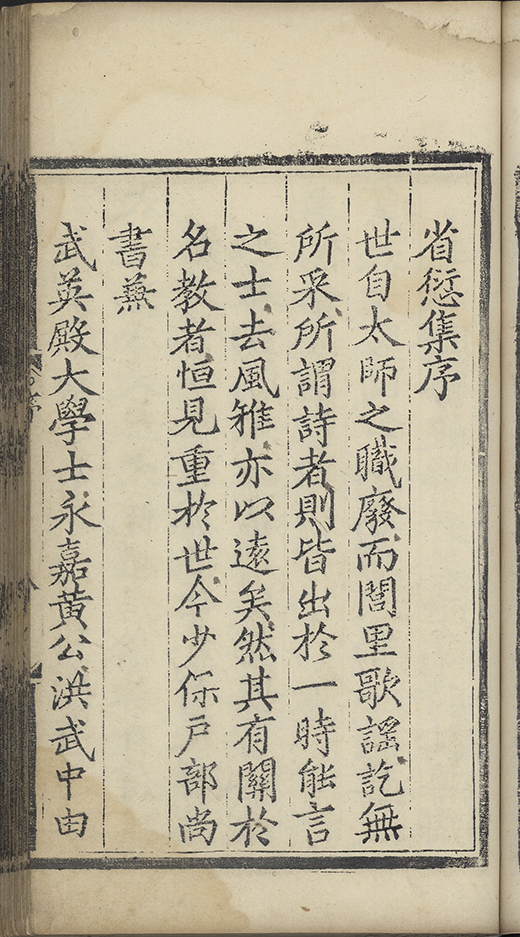 省愆集序
世自太師之職廢而閭里歌謡訖無
所采所謂詩者則皆出於一時能言
之士去風雅亦以遠矣然其有關於
名教者恒見重於世今少保户部尚
書兼
武英殿大學士永嘉黄公洪武中由
序